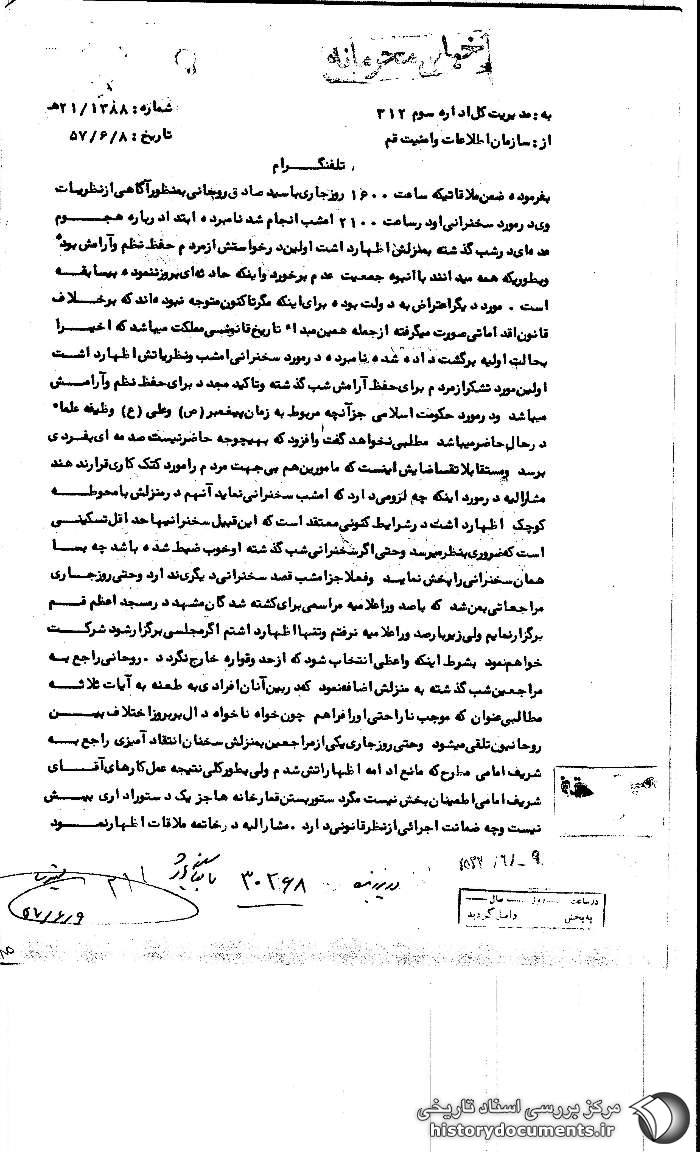 خیلی محرمانه
به: مدیریت کل اداره سوم ۳۱۲
شماره: ۲۱/۱۳۸۸ هـ
از: سازمان اطلاعات و امنیت قم
تاریخ: ۵۷/۶/۸
تلفنگرام
بفرموده ضمن ملاقاتیکه ساعت ۱۶۰۰ روز جاری با سید صادق روحانی بمنظور آگاهی از نظریات
وی در مورد سخنرانی او در ساعت ۲۱۰۰ امشب انجام شد نامبرده ابتدا درباره هجوم
عده‌ای در شب گذشته بمنزلش اظهار داشت اولین درخواستش از مردم حفظ نظم و آرامش بود
و بطوریکه همه میدانند با انبوه جمعیت عدم برخورد و اینکه حادثه‌ای بروز ننموده بیسابقه
است . مورد دیگر اعتراض به دولت بوده برای اینکه مگر تاکنون متوجه نبوده‌اند که برخلاف
قانون اقداماتی صورت میگرفته از جمله همین مبداء تاریخ قانونی مملکت میباشد که اخیرا
بحالت اولیه برگشت داده شده نامبرده در مورد سخنرانی امشب و نظریاتش اظهار داشت
اولین مورد تشکر از مردم برای حفظ آرامش شب گذشته و تاکید مجدد برای حفظ نظم و آرامش
میباشد و در مورد حکومت اسلامی جز آنچه مربوط به زمان پیغمبر (ص) و علی (ع) وظیفه علماء
در حال حاضر میباشد مطلبی نخواهد گفت و افزود که بهیچوجه حاضر نیست صدمه‌ای بفردی
برسد و متقابلا تقاضایش اینست که مامورین هم بی جهت مردم را مورد کتک کاری قرار ندهند
مشارالیه در مورد اینکه چه لزومی دارد که امشب سخنرانی نماید آنهم در منزلش با محوطه
کوچک اظهار داشت در شرایط کنونی معتقد است که این قبیل سخنرانیها حداقل تسکینی
است که ضروری بنظر میرسد و حتی اگر سخنرانی شب گذشته او خوب ضبط شده باشد چه بسا
همان سخنرانی را پخش نماید و فعلا جز امشب قصد سخنرانی دیگری ندارد و حتی روز جاری
مراجعاتی بمن شد که با صدور اعلامیه مراسمی برای کشته شدگان مشهد در مسجد اعظم قم
برگزار نمایم ولی زیر بار صدور اعلامیه نرفتم و تنها اظهار داشتم اگر مجلسی برگزار شود شرکت
خواهم نمود بشرط اینکه واعظی انتخاب شود که از حد و قواره خارج نگردد . روحانی راجع به
مراجعین شب گذشته به منزلش اضافه نمود که در بین آنان افرادی به طعنه به آیات ثلاثه
مطالبی عنوان که موجب ناراحتی او را فراهم چون خواه ناخواه دال بر بروز اختلاف بین
روحانیون تلقی میشود و حتی روز جاری یکی از مراجعین بمنزلش سخنان انتقاد آمیزی راجع به
شریف امامی مطرح که مانع ادامه اظهاراتش شدم ولی بطور کلی نتیجه عمل کارهای آقای
شریف امامی اطمینان بخش نیست مگر دستور بستن قمارخانه ها جز یک دستور اداری بیش
نیست و چه ضمانت اجرائی از نظر قانونی دارد . مشارالیه در خاتمه ملاقات اظهار نمود
۹ـ/۶/
۳۰۲۶۸
۲۱۱
۵۷/۶/۹
در ساعت روز سال
به بخش واصل گردید
مرکز بررسی اسناد تاریخی
historydocuments.ir